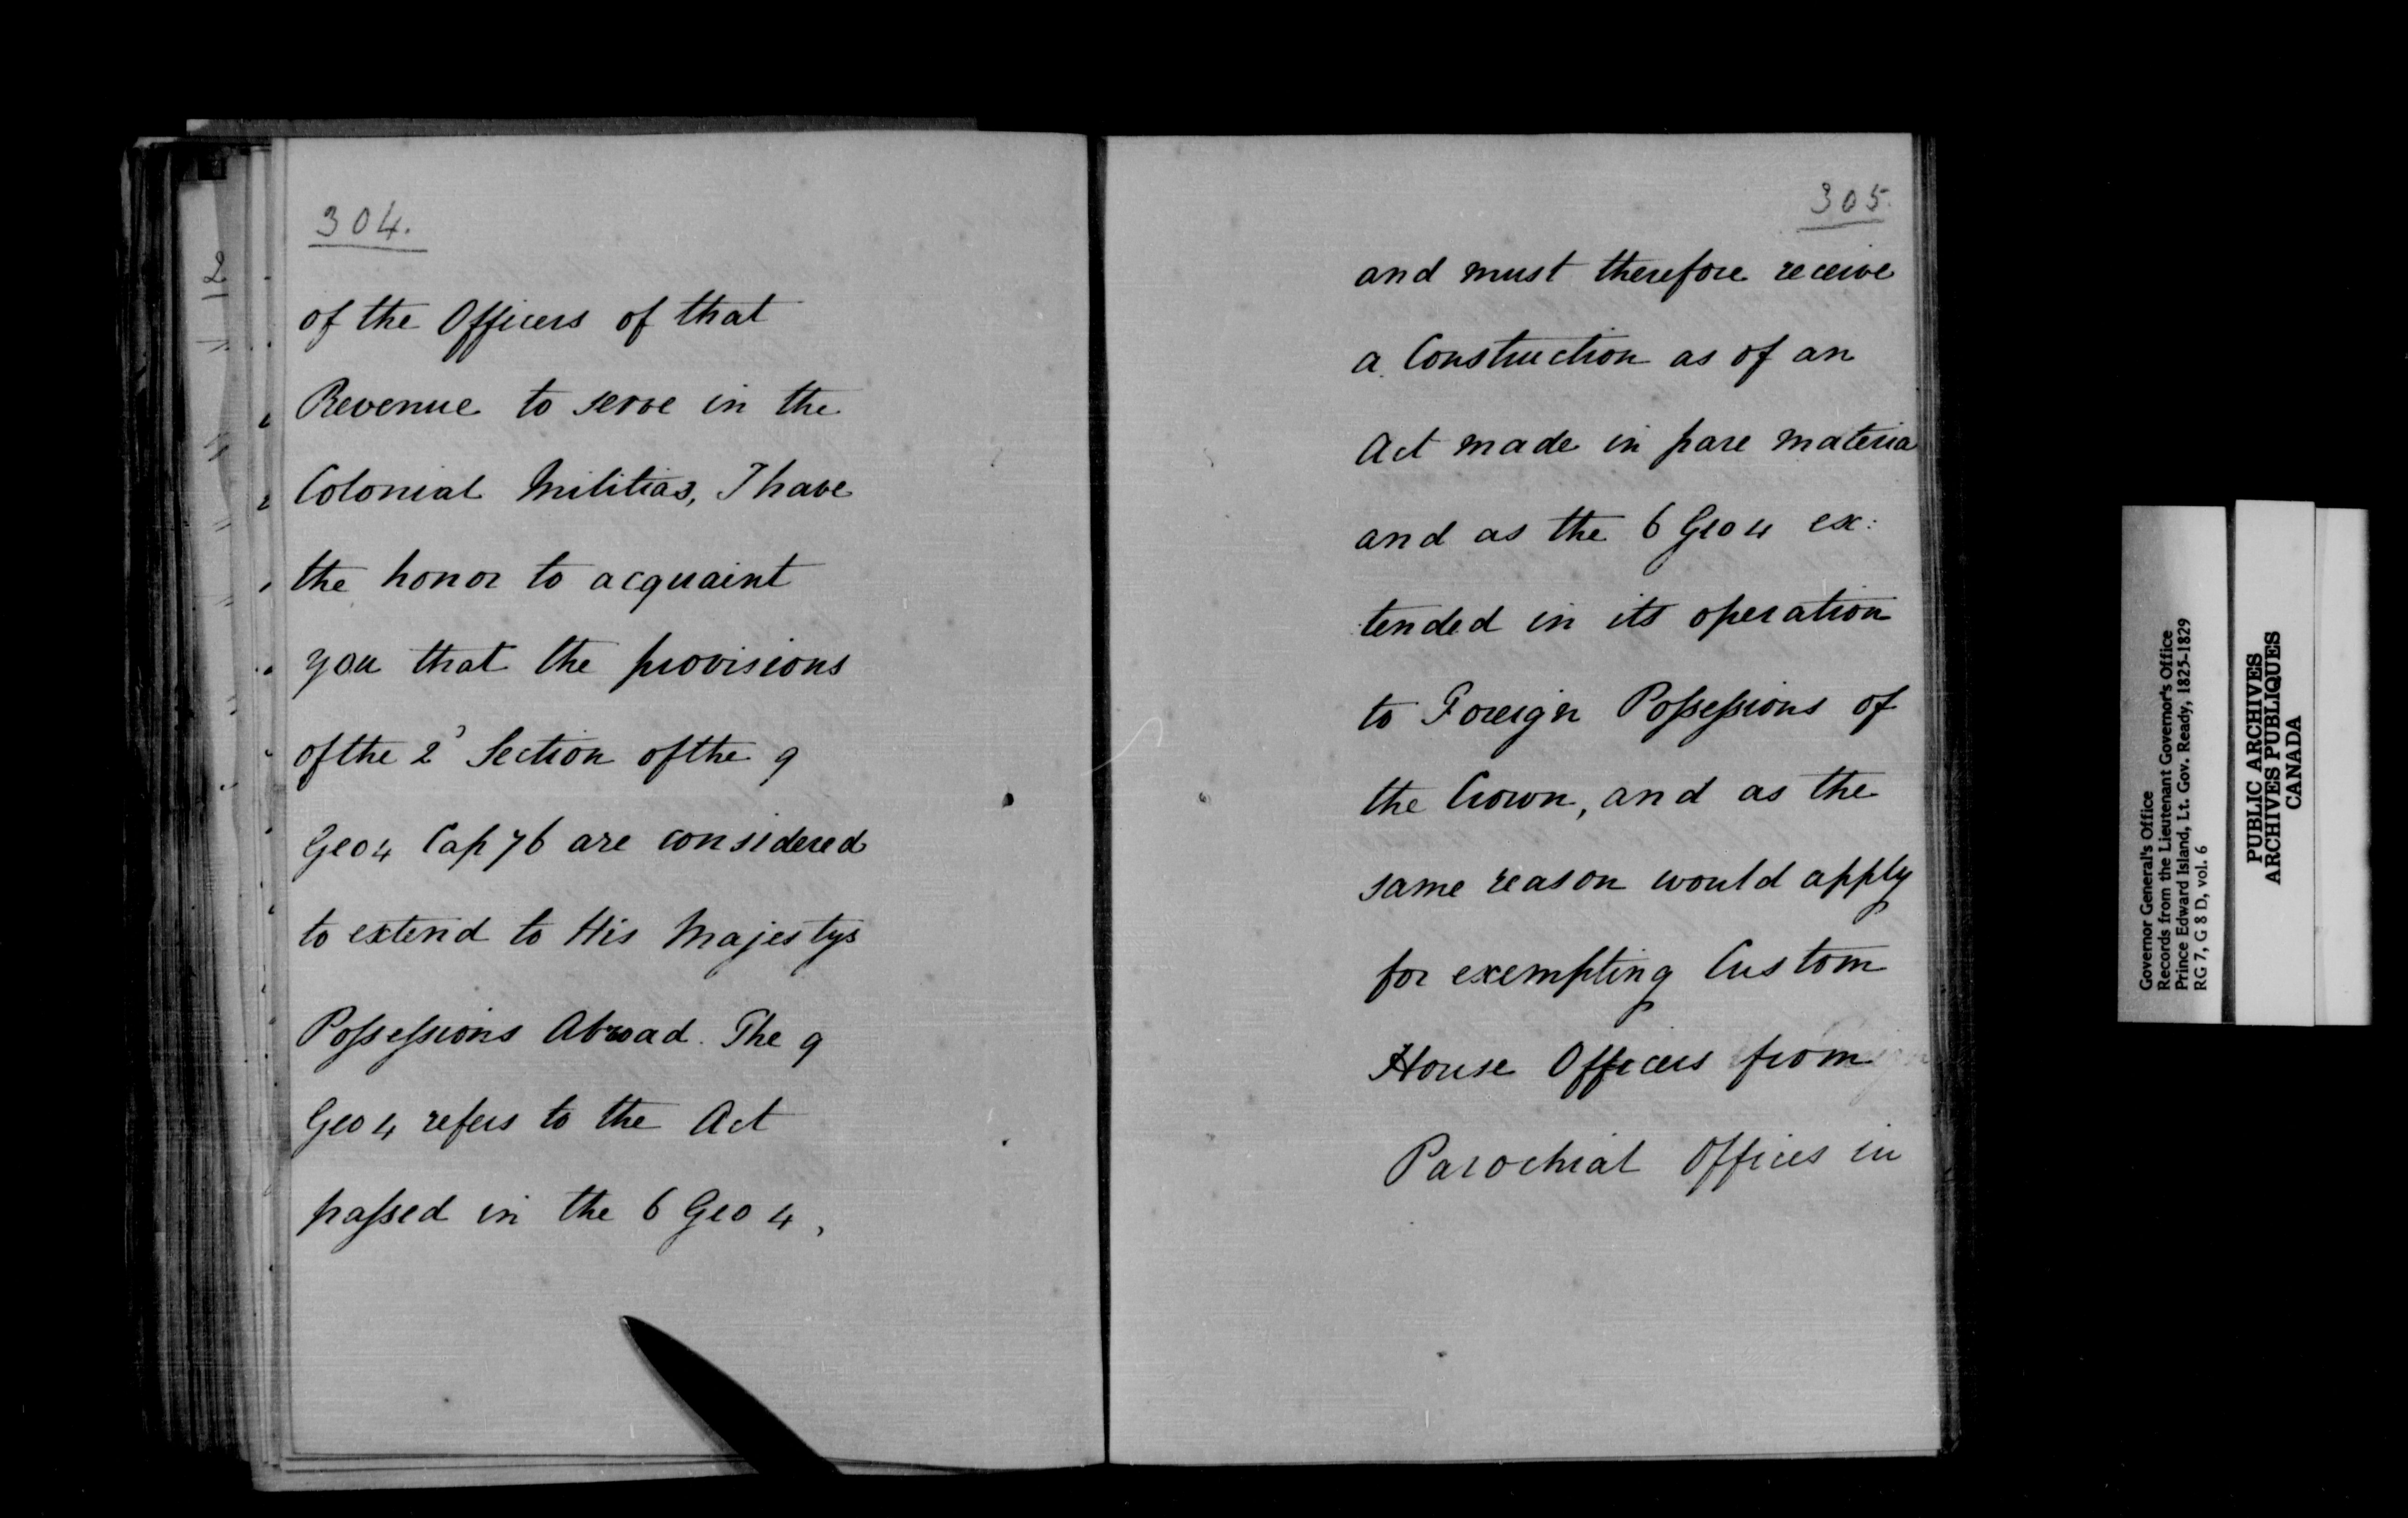 304.
of the Officers of that
Revenue to serve in the
Colonial Militias, I have
the honor to acquaint
you that the provisions
of the 2d Section of the 9
Geo 4 Cap 76 are considered
to extend to His Majestys
Possessions Abroad. The 9
Geo 4 refers to the Act
passed in the 6 Geo 4,
305.
and must therefore receive
a Construction as of an
Act made in pare materia
and as the 6 Geo 4 ex:
:tended in its operation
to Foreign Possessions of
the Crown, and as the
same reason would apply
for exempting Custom
House Officers from
Parochial Offices in
Governor General's Office
Records from the Lieutenant Governor's Office
Prince Edward Island, Lt. Gov. Ready, 1825-1829
RG 7, G 8 D, vol. 6
PUBLIC ARCHIVES
ARCHIVES PUBLIQUES
CANADA